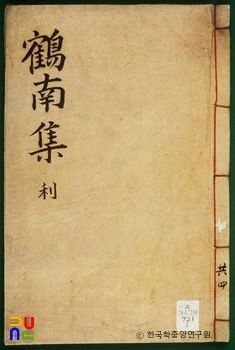 鶴南集
利
共四
721
© 한국학중앙연구원